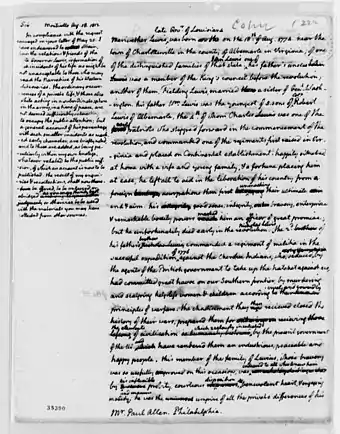 Copy
(222
Sir Monticello Aug. 18. 1813
In compliance with the request
conveyed in your letter of May 25. I
have endeavored to obtain, from
the relations & friends of the
late Governor Lewis information of
such incidents of his life as might be
not unacceptable to those who may
read the Narrative of his Western
discoveries. the ordinary occur-
rences of a private life, & those also
while acting in a subordinate sphere
in the army, in a time of peace, are
not deemed sufficiently interesting
to occupy the public attention; but
a general account of his parentage
with such smaller incidents as marked
his early character, are briefly noted
and to these are added, as being pe-
culiarly within my own knolege,
whatever related to the public mis-
sion, of which an account is now to be
published.
with the materials you may have
collected from other sources.
late Govr. of Louisiana
Meriwether Lewis, was born on the 18th of Aug. 1774 near the
town of Charlottesville in the county of Albemarle in Virginia, of one of
the distinguished families of that state. John Lewis one of his father's uncles
was a member of the King's council, before the revolution,
another of them, Fielding Lewis, married a sister of Genl. Wash-
ington. his father Wm. Lewis was the youngest of 5 sons of Robert
Lewis of Albemarle, the 4th of whom Charles was one of the
early patriots who stepped forward in the commencement of the
revolution, and commanded one of the regiments first raised in Vir-
ginia and placed on Continental establishment. happily situated
at home with a wife and young family, & a fortune placing him
at ease, he left all to aid in the liberation of his country, from a
foreign usurpations then first unmasking their ultimate
end & aim. his good sense, integrity, bravery, enterprise
& remarkable bodily powers marked him an officer of great promise;
but he unfortunately died early in the revolution. Nicholas Lewis the 2d. of
his father's brothers commanded a regiment of militia in the
successful expedition of 1776 against the Cherokee Indians, who, seduced by
the agents of the British government to take up the hatchet against us,
had committed great havoc on our Southern frontier, by murdering
and scalping helpless women & children according to
principles of warfare. the chastisement they then recieved closed the
history of their wars, prepared them for receiving
the elements of civilisation which zealously inculcated by the present government
of the US. have rendered them an industrious, peaceable and
happy people. this member of the family of Lewises, whose bravery
was so usefully proved on this occasion, was endeared to all who knew him
by his inflexible probity, courteous disposition, benevolent heart, & engaging
modesty & manners. he was the umpire of all the private differences of his
Mr. Paul Allen. Philadelphia.
35350